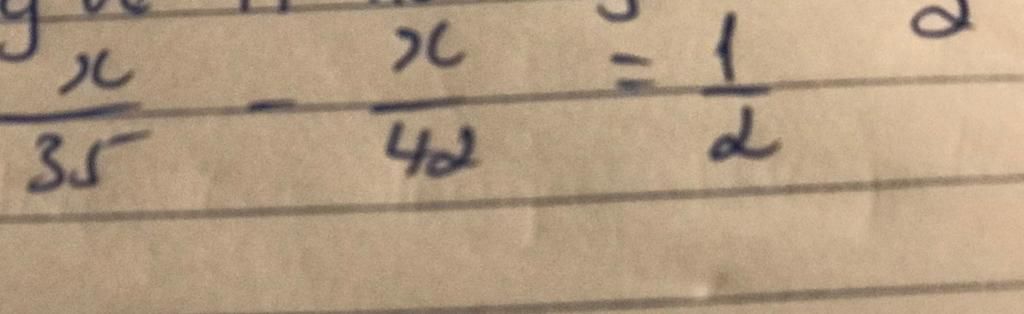 x/35 - x/42 = 1/2